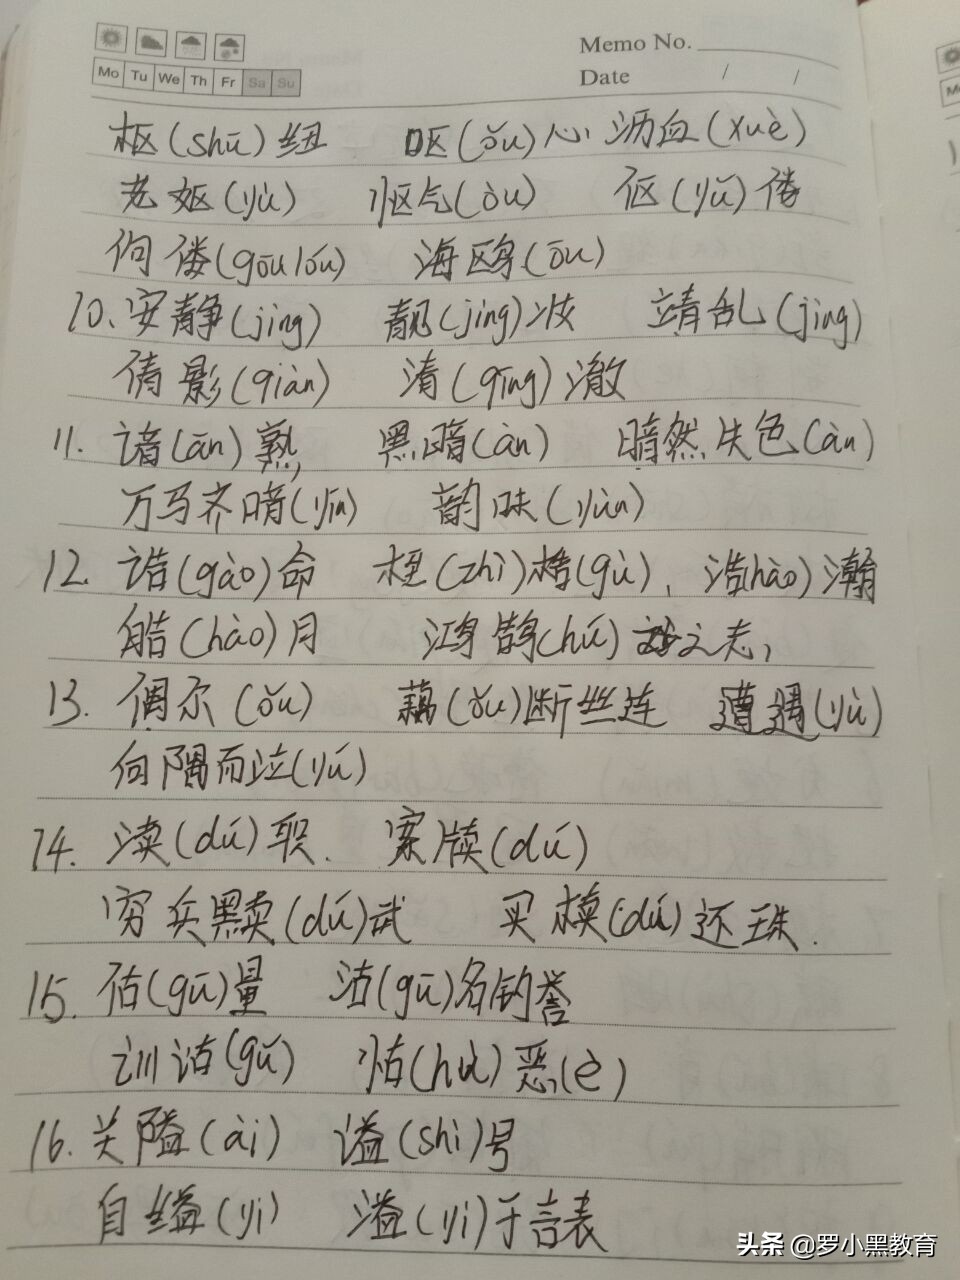 Memo No.
Mo Tu We Th Fr Sa Su
Date / /
枢(shū)纽 呕(ǒu)心沥血(xuè)
老妪(yù) 怄气(òu) 伛(yǔ)偻
佝偻(gōu lóu) 海鸥(ōu)
10、安静(jìng) 靓(jìng)妆 靖乱(jìng)
倩影(qiàn) 清(qīng)澈
11. 谙(ān)熟, 黑暗(àn) 暗然失色(àn)
万马齐喑(yīn) 韵味(yùn)
12. 诰(gào)命 桎(zhì)梏(gù), 浩(hào)瀚
皓(hào)月 鸿鹄(hú)之志,
13. 偶尔(ǒu) 藕(ǒu)断丝连 遭遇(yù)
向隅而泣(yú)
14. 渎(dú)职. 案牍(dú)
穷兵黩(dú)武 买椟(dú)还珠.
15. 估(gū)量 沽(gū)名钓誉
训诂(gǔ) 怙(hù)恶(è)
16. 关隘(ài) 谥(shì)号
自缢(yì) 溢(yì)于言表
头条 @罗小黑教育